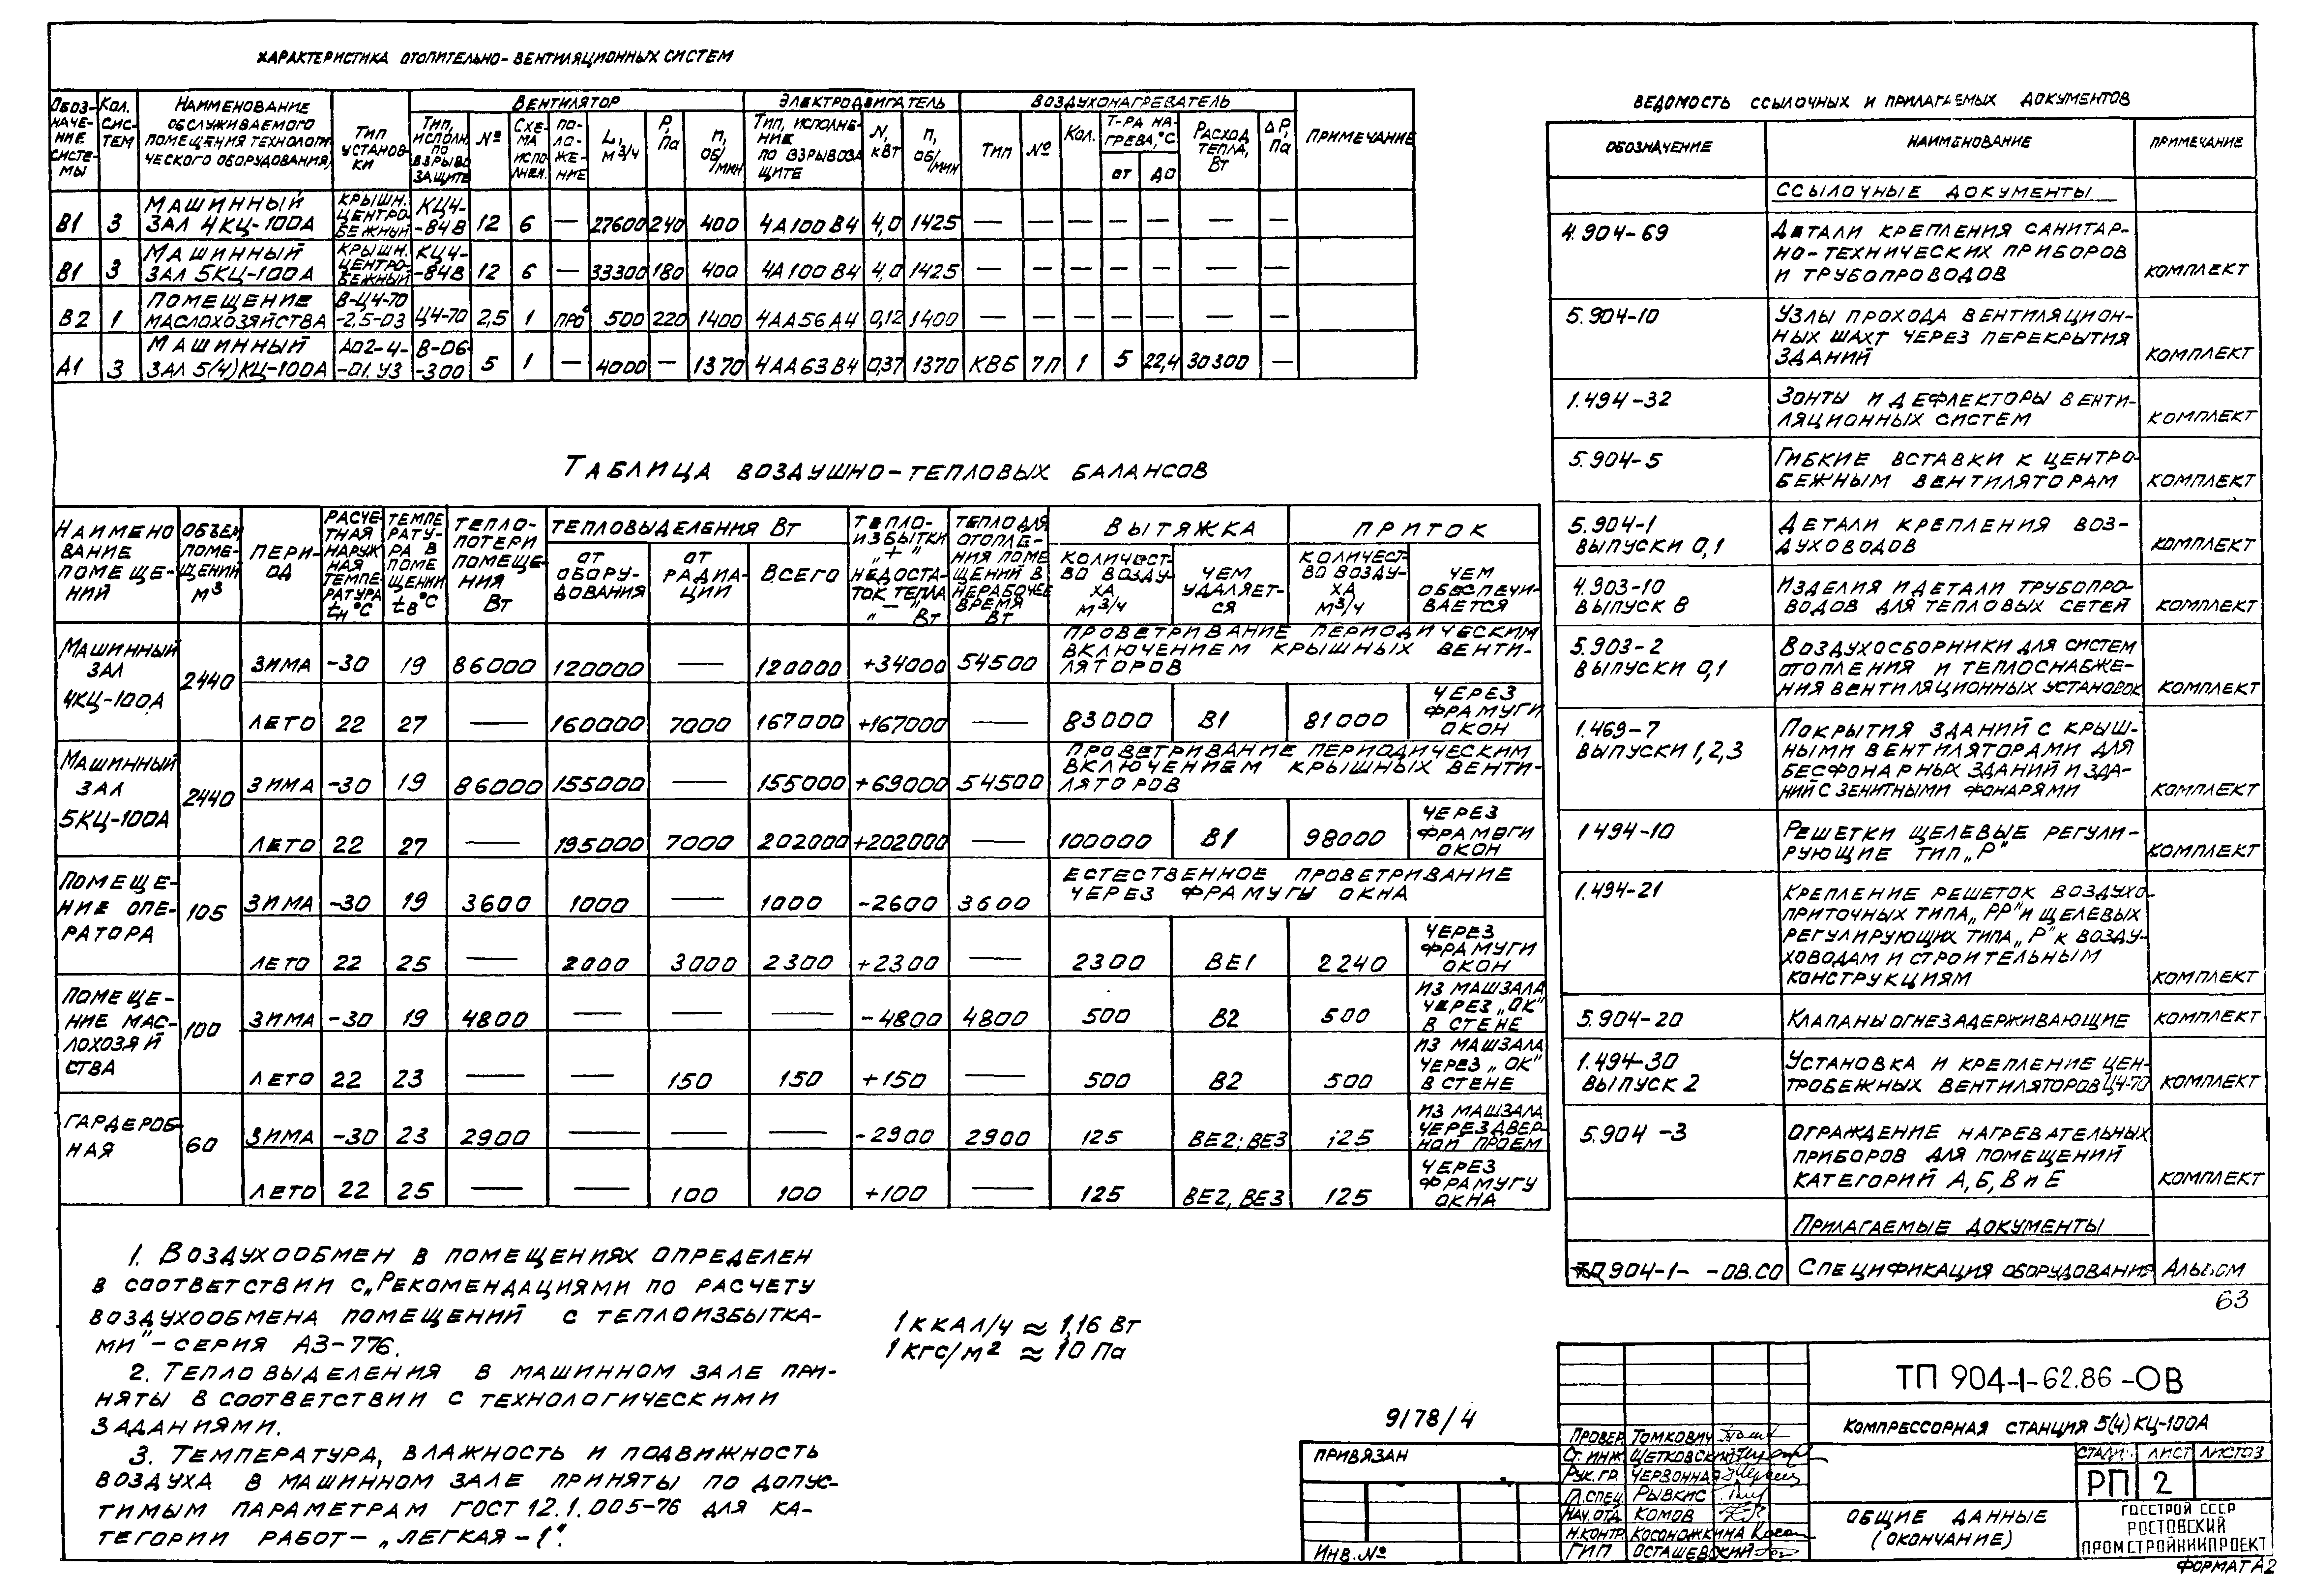 ХАРАКТЕРИСТИКА ОТОПИТЕЛЬНО-ВЕНТИЛЯЦИОННЫХ СИСТЕМ
ОБОЗНАЧЕ-НИЕ СИСТЕ-МЫ | КОЛ. СИС-ТЕМ | НАИМЕНОВАНИЕ ОБСЛУЖИВАЕМОГО ПОМЕЩЕНИЯ (ТЕХНОЛОГИЧЕСКОГО ОБОРУДОВАНИЯ) | ТИП УСТАНОВ-КИ | ВЕНТИЛЯТОР | ЭЛЕКТРОДВИГАТЕЛЬ | ВОЗДУХОНАГРЕВАТЕЛЬ | ПРИМЕЧАНИЕ
ТИП, ИСПОЛН. ПО ВЗРЫВО ЗАЩИТЕ | № | СХЕ-МА ИСПО-ЛНЕН. | ПО-ЛО-ЖЕ-НИЕ | L, М³/Ч | Р, Па | П, ОБ/МИН | ТИП, ИСПОЛНЕ-НИЕ ПО ВЗРЫВОЗАЩИТЕ | N, КВТ | П, ОБ/МИН | ТИП | № | КОЛ. | Т-РА НА-ГРЕВА, °С ОТ ДО | РАСХОД ТЕПЛА, Вт | ΔР, Па
В1 3 МАШИННЫЙ ЗАЛ 4КЦ-100А КРЫШН. ЦЕНТРО-БЕЖНЫЙ КЦ4--84В 12 6 — 27600 240 400 4А100В4 4,0 1425 — — — — — — —
В1 3 МАШИННЫЙ ЗАЛ 5КЦ-100А КРЫШН. ЦЕНТРО-БЕЖНЫЙ КЦ4--84В 12 6 — 33300 180 400 4А100В4 4,0 1425 — — — — — — —
В2 1 ПОМЕЩЕНИЕ МАСЛОХОЗЯЙСТВА В-Ц4-70-2,5-03 Ц4-70 2,5 1 ПР0° 500 220 1400 4АА56А4 0,12 1400 — — — — — — —
А1 3 МАШИННЫЙ ЗАЛ 5(4)КЦ-100А АО2-4--01.У3 В-06--300 5 1 — 4000 — 1370 4АА63В4 0,37 1370 КВБ 7П 1 5 22,4 30300 —
ТАБЛИЦА ВОЗДУШНО-ТЕПЛОВЫХ БАЛАНСОВ
НАИМЕНО ВАНИЕ ПОМЕЩЕ-НИЙ | ОБЪЕМ ПОМЕ-ЩЕНИЙ М³ | ПЕРИ-ОД | РАСЧЕ-ТНАЯ НАРУЖ НАЯ ТЕМПЕ-РАТУРА tн °С | ТЕМПЕ РАТУ-РА В ПОМЕ ЩЕНИИ tв °С | ТЕПЛО-ПОТЕРИ ПОМЕЩЕ-НИЯ Вт | ТЕПЛОВЫДЕЛЕНИЯ Вт | ТЕПЛО-ИЗБЫТКИ „+" НЕДОСТА-ТОК ТЕПЛА „—" Вт | ТЕПЛО ДЛЯ ОТОПЛЕ-НИЯ ПОМЕ ЩЕНИЙ В НЕРАБОЧЕЕ ВРЕМЯ Вт | ВЫТЯЖКА | ПРИТОК
ОТ ОБОРУ-ДОВАНИЯ | ОТ РАДИА-ЦИИ | ВСЕГО | КОЛИЧЕСТ-ВО ВОЗДУ-ХА М³/Ч | ЧЕМ УДАЛЯЕТ-СЯ | КОЛИЧЕСТ-ВО ВОЗДУ-ХА М³/Ч | ЧЕМ ОБЕСПЕЧИ-ВАЕТСЯ
МАШИННЫЙ ЗАЛ 4КЦ-100А 2440 ЗИМА -30 19 86000 120000 — 120000 +34000 54500 ПРОВЕТРИВАНИЕ ПЕРИОДИЧЕСКИМ ВКЛЮЧЕНИЕМ КРЫШНЫХ ВЕНТИ-ЛЯТОРОВ
ЛЕТО 22 27 — 160000 7000 167000 +167000 — 83000 В1 81000 ЧЕРЕЗ ФРАМУГИ ОКОН
МАШИННЫЙ ЗАЛ 5КЦ-100А 2440 ЗИМА -30 19 86000 155000 — 155000 +69000 54500 ПРОВЕТРИВАНИЕ ПЕРИОДИЧЕСКИМ ВКЛЮЧЕНИЕМ КРЫШНЫХ ВЕНТИ-ЛЯТОРОВ
ЛЕТО 22 27 — 195000 7000 202000 +202000 — 100000 В1 98000 ЧЕРЕЗ ФРАМУГИ ОКОН
ПОМЕЩЕ-НИЕ ОПЕ-РАТОРА 105 ЗИМА -30 19 3600 1000 — 1000 -2600 3600 ЕСТЕСТВЕННОЕ ПРОВЕТРИВАНИЕ ЧЕРЕЗ ФРАМУГУ ОКНА
ЛЕТО 22 25 — 2000 3000 2300 +2300 — 2300 ВЕ1 2240 ЧЕРЕЗ ФРАМУГИ ОКОН
ПОМЕЩЕ-НИЕ МАС-ЛОХОЗЯЙ СТВА 100 ЗИМА -30 19 4800 — — — -4800 4800 500 В2 500 ИЗ МАШЗАЛА ЧЕРЕЗ „ОК" В СТЕНЕ
ЛЕТО 22 23 — — 150 150 +150 — 500 В2 500 ИЗ МАШЗАЛА ЧЕРЕЗ „ОК" В СТЕНЕ
ГАРДЕРОБ-НАЯ 60 ЗИМА -30 23 2900 — — — -2900 2900 125 ВЕ2; ВЕ3 125 ИЗ МАШЗАЛА ЧЕРЕЗ ДВЕР-НОЙ ПРОЕМ
ЛЕТО 22 25 — — 100 100 +100 — 125 ВЕ2, ВЕ3 125 ЧЕРЕЗ ФРАМУГУ ОКНА
1. ВОЗДУХООБМЕН В ПОМЕЩЕНИЯХ ОПРЕДЕЛЕН
В СООТВЕТСТВИИ С „РЕКОМЕНДАЦИЯМИ ПО РАСЧЕТУ
ВОЗДУХООБМЕНА ПОМЕЩЕНИЙ С ТЕПЛОИЗБЫТКА-
МИ" - СЕРИЯ А3-776.
2. ТЕПЛОВЫДЕЛЕНИЯ В МАШИННОМ ЗАЛЕ ПРИ-
НЯТЫ В СООТВЕТСТВИИ С ТЕХНОЛОГИЧЕСКИМИ
ЗАДАНИЯМИ.
3. ТЕМПЕРАТУРА, ВЛАЖНОСТЬ И ПОДВИЖНОСТЬ
ВОЗДУХА В МАШИННОМ ЗАЛЕ ПРИНЯТЫ ПО ДОПУС-
ТИМЫМ ПАРАМЕТРАМ ГОСТ 12.1.005-76 ДЛЯ КА-
ТЕГОРИИ РАБОТ - „ЛЕГКАЯ-1".
1 ККАЛ/Ч ≈ 1,16 Вт
1 КГС/М² ≈ 10 Па
ВЕДОМОСТЬ ССЫЛОЧНЫХ И ПРИЛАГАЕМЫХ ДОКУМЕНТОВ
ОБОЗНАЧЕНИЕ НАИМЕНОВАНИЕ ПРИМЕЧАНИЕ
ССЫЛОЧНЫЕ ДОКУМЕНТЫ
4.904-69 ДЕТАЛИ КРЕПЛЕНИЯ САНИТАР-
НО-ТЕХНИЧЕСКИХ ПРИБОРОВ
И ТРУБОПРОВОДОВ КОМПЛЕКТ
5.904-10 УЗЛЫ ПРОХОДА ВЕНТИЛЯЦИОН-
НЫХ ШАХТ ЧЕРЕЗ ПЕРЕКРЫТИЯ
ЗДАНИЙ КОМПЛЕКТ
1.494-32 ЗОНТЫ И ДЕФЛЕКТОРЫ ВЕНТИ-
ЛЯЦИОННЫХ СИСТЕМ КОМПЛЕКТ
5.904-5 ГИБКИЕ ВСТАВКИ К ЦЕНТРО-
БЕЖНЫМ ВЕНТИЛЯТОРАМ КОМПЛЕКТ
5.904-1 ДЕТАЛИ КРЕПЛЕНИЯ ВОЗ-
ВЫПУСКИ 0,1 ДУХОВОДОВ КОМПЛЕКТ
4.903-10 ИЗДЕЛИЯ И ДЕТАЛИ ТРУБОПРО-
ВЫПУСК 8 ВОДОВ ДЛЯ ТЕПЛОВЫХ СЕТЕЙ КОМПЛЕКТ
5.903-2 ВОЗДУХОСБОРНИКИ ДЛЯ СИСТЕМ
ВЫПУСКИ 0,1 ОТОПЛЕНИЯ И ТЕПЛОСНАБЖЕ-
НИЯ ВЕНТИЛЯЦИОННЫХ УСТАНОВОК КОМПЛЕКТ
1.469-7 ПОКРЫТИЯ ЗДАНИЙ С КРЫШ-
ВЫПУСКИ 1,2,3 НЫМИ ВЕНТИЛЯТОРАМИ ДЛЯ
БЕСФОНАРНЫХ ЗДАНИЙ И ЗДА-
НИЙ С ЗЕНИТНЫМИ ФОНАРЯМИ КОМПЛЕКТ
1 494-10 РЕШЕТКИ ЩЕЛЕВЫЕ РЕГУЛИ-
РУЮЩИЕ ТИП „Р" КОМПЛЕКТ
1.494-21 КРЕПЛЕНИЕ РЕШЕТОК ВОЗДУХО-
ПРИТОЧНЫХ ТИПА „РР" И ЩЕЛЕВЫХ
РЕГУЛИРУЮЩИХ ТИПА „Р" К ВОЗДУ-
ХОВОДАМ И СТРОИТЕЛЬНЫМ
КОНСТРУКЦИЯМ КОМПЛЕКТ
5.904-20 КЛАПАНЫ ОГНЕЗАДЕРЖИВАЮЩИЕ КОМПЛЕКТ
1.494-30 УСТАНОВКА И КРЕПЛЕНИЕ ЦЕН-
ВЫПУСК 2 ТРОБЕЖНЫХ ВЕНТИЛЯТОРОВ Ц4-70 КОМПЛЕКТ
5.904-3 ОГРАЖДЕНИЕ НАГРЕВАТЕЛЬНЫХ
ПРИБОРОВ ДЛЯ ПОМЕЩЕНИЙ
КАТЕГОРИЙ А,Б,В И Е КОМПЛЕКТ
ПРИЛАГАЕМЫЕ ДОКУМЕНТЫ
ТП 904-1- -ОВ.СО СПЕЦИФИКАЦИЯ ОБОРУДОВАНИЯ АЛЬБОМ
63
9178/4
ПРИВЯЗАН
ИНВ. №
ТП 904-1-62.86-ОВ
КОМПРЕССОРНАЯ СТАНЦИЯ 5(4)КЦ-100А
ПРОВЕР. ТОМКОВИЧ
СТ. ИНЖ. ЩЕТКОВСКИЙ
РУК. ГР. ЧЕРВОННАЯ
ГЛ.СПЕЦ. РЫВКИС
НАЧ.ОТД. КОМОВ
Н.КОНТР. КОСОНОЖКИНА
ГИП ОСТАШЕВСКИЙ
СТАДИЯ ЛИСТ ЛИСТОВ
РП 2
ОБЩИЕ ДАННЫЕ
(ОКОНЧАНИЕ)
ГОССТРОЙ СССР
РОСТОВСКИЙ
ПРОМСТРОЙНИИПРОЕКТ
ФОРМАТ А2